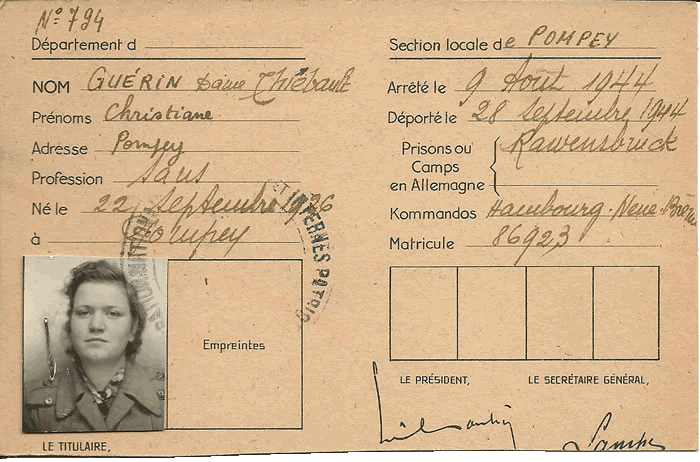 N° 794
Département d
NOM GUÉRIN Dame Thiébault
Prénoms Christiane
Adresse Pompey
Profession sans
Né le 22 Septembre 1926
à Pompey
Empreintes
LE TITULAIRE,
Section locale de POMPEY
Arrêté le 9 Août 1944
Déporté le 28 Septembre 1944
Prisons ou Rawensbruck
Camps
en Allemagne
Kommandos Hambourg-Neue-
Matricule 86923
LE PRÉSIDENT, LE SECRÉTAIRE GÉNÉRAL,
INTERNES